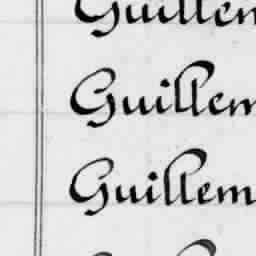 Guillem
Guillem
Guillem